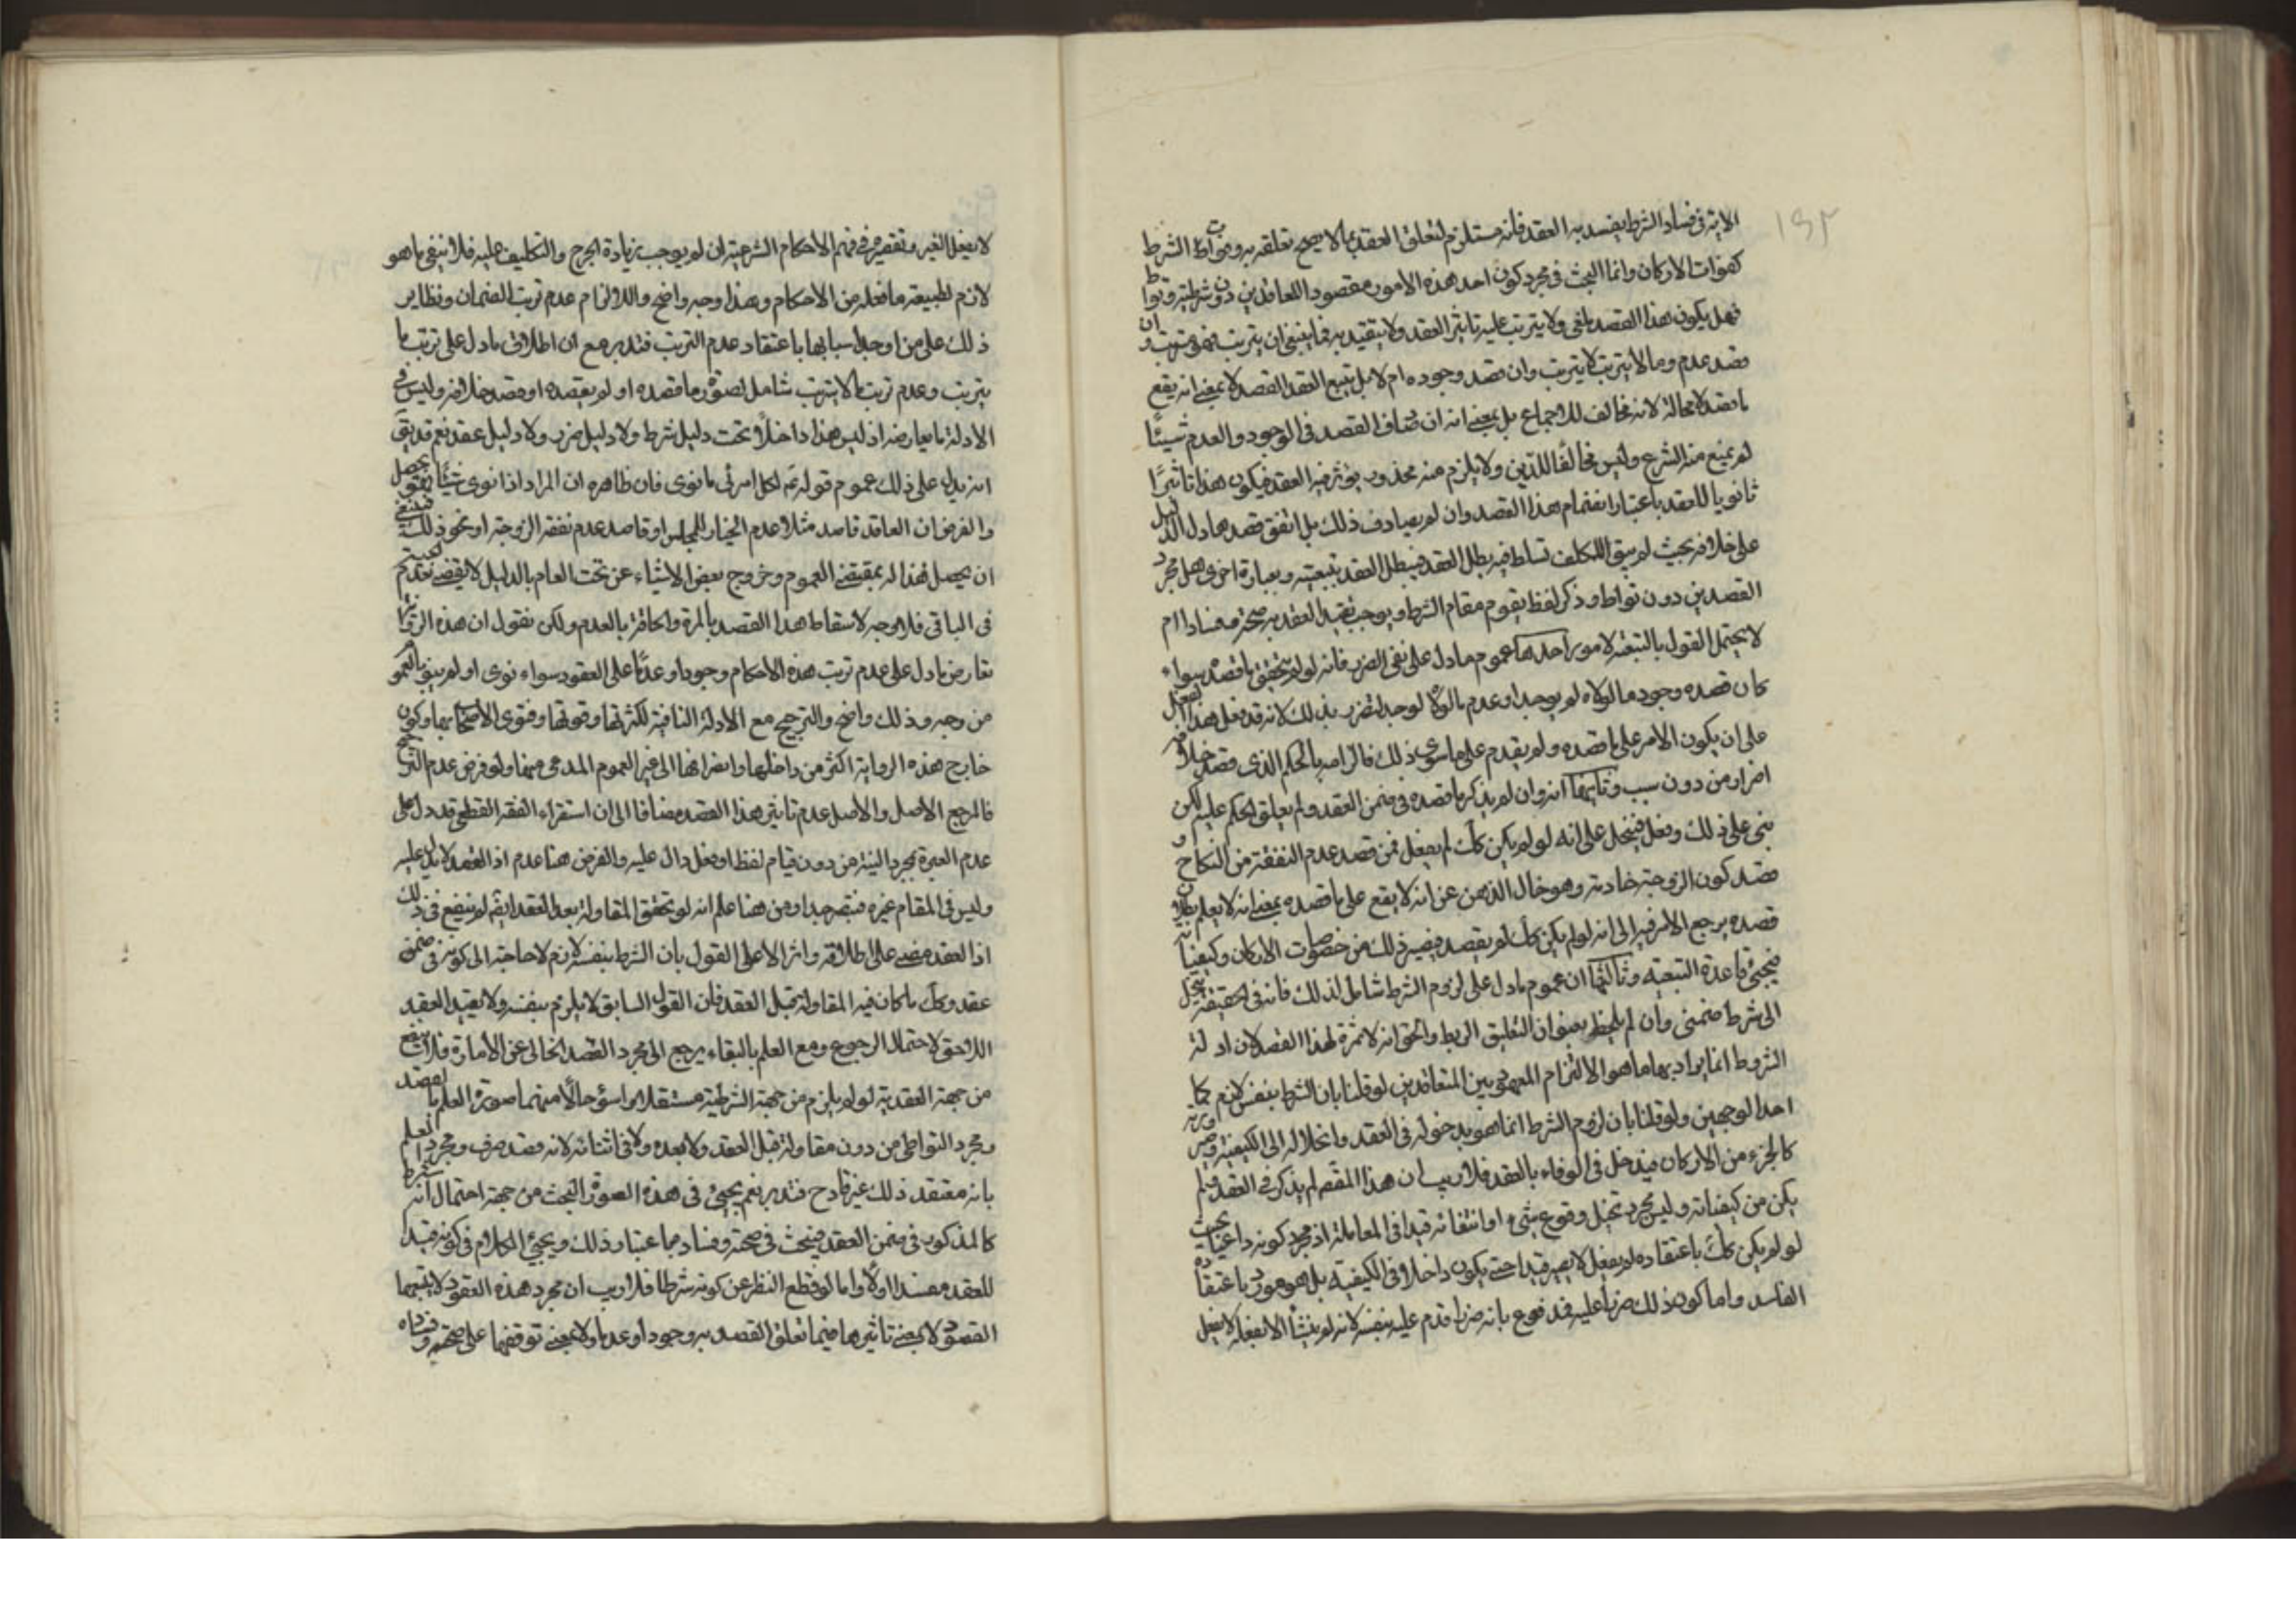 ١٩٢
الاتية في فساد الشرط يفسد به العقد فانه مستلزم لتعلق العقد بما لا يصح تعلقه به وفوات الشرط
كفوات الاركان وانما البحث في مجرد كون احد هذه الامور مقصود اللعاقدين دون شرطية وتواط
فهل يكون هذا القصد يلغى ولا يترتب عليه تاثير العقد ولا يتقيد به فما ينبغي ان يترتب وان
قصد عدمه وما لا يترتب لا يترتب وان قصد وجوده ام لا بل يتبع العقد القصد لا بمعنى انه يقع
ما قصد لا محالة لانه مخالف للاجماع بل بمعنى انه ان صادف القصد في الوجود والعدم شيئا
لم يمنع منه الشرع وليس مخالفا للدين ولا يلزم منه محذور يؤثر فيه العقد فيكون هذا تاثيرا
ثانويا للعقد باعتبار انضمام هذا القصد وان لم يصادف ذلك بل اتفق قصد ما دل الدليل
على خلافه بحيث لم يبق للمكلف تسلط فيه بطل العقد فيبطل العقد بتبعيته وبعبارة اخرى هل مجرد
القصد من دون تواط وذكر لفظ يقوم مقام الشرط ويوجب تقييد العقد به صحة وفسادا ام
لا يحتمل القول بالتبعية لامور احدها عموم ما دل على نفي الضرر فانه لو لم يتحقق ما قصده سواء
كان قصده وجود ما لولاه لم يوجد او عدم ما لولاه لوجد لتضرر بذلك لانه قد فعل هذا الفعل
على ان يكون الامر على ما قصده ولم يقدم على ما سوى ذلك فالزامه بالحكم الذي قصد خلافه
اضرار من دون سبب وثانيها انه وان لم يذكر ما قصده في ضمن العقد ولم يعلق الحكم عليه لكن
بنى على ذلك وفعل فينحل على انه لو لم يكن كك لم يفعل فمن قصد عدم النفقة من النكاح و
قصد كون الزوجة خادمة وهو خال الذهن عن انه لا يقع على ما قصده بمعنى انه لا يعلم بطلان
قصده يرجع الامر فيه الى انه لو لم يكن كك لم يقصد فيصير ذلك من خصوصيات الاركان وكيفياته
فيجيء قاعدة التبعية وثالثها ان عموم ما دل على لزوم الشرط شامل لذلك فانه في الحقيقة ينحل
الى شرط ضمني وان لم يلحظ بعنوان التعليق الربط والحق انه لا ثمرة لهذا القصد لان ادلة
الشروط انما يراد بها ما هو الالتزام المعهود بين المتعاقدين لو قلنا بان الشرط بنفسه لازم كما
احد الوجهين ولو قلنا بان لزوم الشرط انما هو بدخوله في العقد وانحلاله الى الكيفية وصيرورته
كالجزء من الاركان فيدخل في الوفاء بالعقد فلا ريب ان هذا القصد لم يذكر في العقد فلم
يكن من كيفياته وليس مجرد تخيل وقوع شيء او انتفائه قيدا في المعاملة اذ مجرد كونه داعيا بحيث
لو لم يكن كك باعتقاده لم يفعل لا يصير قيدا حتى يكون داخلا في الكيفية بل هو مورد باعتقاده
الفاسد واما كون ذلك ضررا عليه فمدفوع بانه ضرر اقدم عليه بنفسه لانه لم ينشأ الا بفعله لا بفعل
لا بفعل الغير وتقصيره في فهم الاحكام الشرعية ان لم يوجب زيادة الحرج والتكليف عليه فلا ينفي ما هو
لازم لطبيعة ما فعله من الاحكام وهذا وجه واضح والا لزم عدم ترتب الضمان ونظاير
ذلك على من اوجد اسبابها باعتقاد عدم الترتب فتدبر مع ان اطلاق ما دل على ترتب ما
يترتب وعدم ترتب ما لا يترتب شامل لصورة ما قصده او لم يقصده او قصد خلافه وليس في
الادلة ما يعارضه اذ ليس هذا داخلا تحت دليل شرط ولا دليل ضرر ولا دليل عقد نعم قد يق
انه يدل على ذلك عموم قوله ثم لكل امرئ ما نوى فان ظاهره ان المراد اذا نوى شيئا يحصل
والفرض ان العاقد قاصد مثلا عدم الخيار للمجلس او قاصد عدم نفقة الزوجة او نحو ذلك فينبغي
ان يحصل هذا له بمقتضى العموم وخروج بعض الاشياء عن تحت العام بالدليل لا يقضي بعدم حجيته
في الباقي فلا وجه لاسقاط هذا القصد بالمرة والحاقه بالعدم ولكن نقول ان هذه الرواية
تعارض ما دل على عدم ترتب هذه الاحكام وجودا وعدما على العقود سواء نوى او لم ينو بالعموم
من وجه وذلك واضح والترجيح مع الادلة النافية لكثرتها وقوتها وفتوى الاصحاب بها وكون
خارج هذه الرواية اكثر من داخلها وانصرافها الى غير العموم المدعى منها ولو فرض عدم الترجيح
فالمرجع الاصل والاصل عدم تاثير هذا القصد مضافا الى ان استقراء الفقه القطعي قد دل على
عدم العبرة بمجرد النية من دون قيام لفظ او فعل دال عليه والفرض هنا عدم اذ العقد لا يدل عليه
وليس في المقام غيره فتبصر جدا ومن هنا علم انه لو تحقق المقاولة بعد العقد ايضا لم ينفع في ذلك
اذ العقد مضى على اطلاقه واثر الا على القول بان الشرط بنفسه لازم لا حاجة الى كونه في ضمن
عقد وكك ما كان فيه المقاولة قبل العقد فان القول السابق لا يلزم بنفسه ولا يقيد العقد
اللاحق لاحتمال الرجوع ومع العلم بالبقاء يرجع الى مجرد القصد الخالي عن الامارة فلا ينفع
من جهة العقدية لو لم يلزم من جهة الشرطية مستقلا واسوء حالا منهما صورة العلم بالقصد
ومجرد التواطي من دون مقاولة قبل العقد ولا بعده ولا في اثنائه لانه قصد صرف ومجرد العلم
بانه معتقد ذلك غير قادح فتدبر نعم يجيء في هذه الصورة البحث من جهة احتمال انه شرط
كالمذكور في ضمن العقد فيبحث في صحته وفساده باعتبار ذلك ويجيء الكلام في كونه قيدا
للعقد مفسدا اولا واما لو قطع النظر عن كونه شرطا فلا ريب ان مجرد هذه العقود لا يتبعها
القصود لا بمعنى تاثيرها فيما تعلق القصد به وجودا وعدما ولا بمعنى توقفها على صحته وفساده